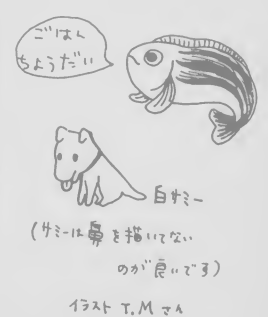 ごはん
ちょうだい
自サミー
(サミーは鼻を描いてない
のが良いです)
イラスト T.Mさん